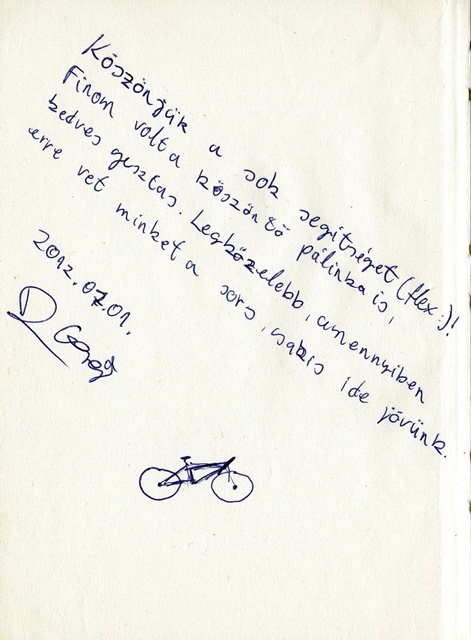 Köszönjük a sok segítséget (flex :)!
Finom volt a köszöntő pálinka is,
kedves gesztus. Legközelebb, amennyiben
erre vet minket a sors, is ide jövünk.
2012.07.01.
D